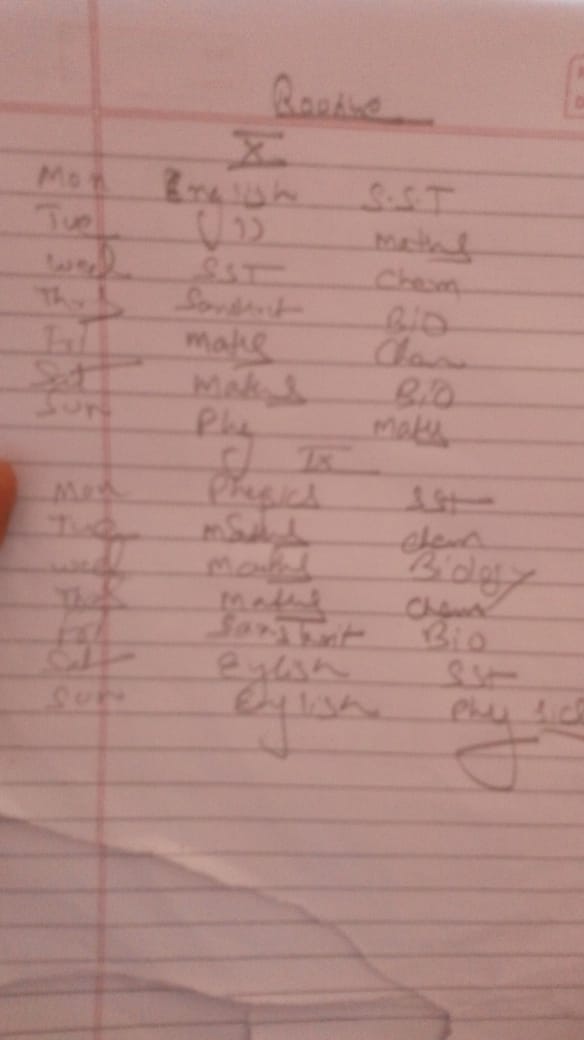 Routine
X
Mon English S.S.T
Tue " Maths
Wed SST Chem
Thus Sanskrit BiO
Fri maths Chem
Sat Maths BiO
Sun Phy maths
IX
Mon Physics SSt
Tue maths chem
wed maths Biology
Thus maths chem
Fri Sanskrit Bio
Sat Eylish SSt
Sun Eylish Physics